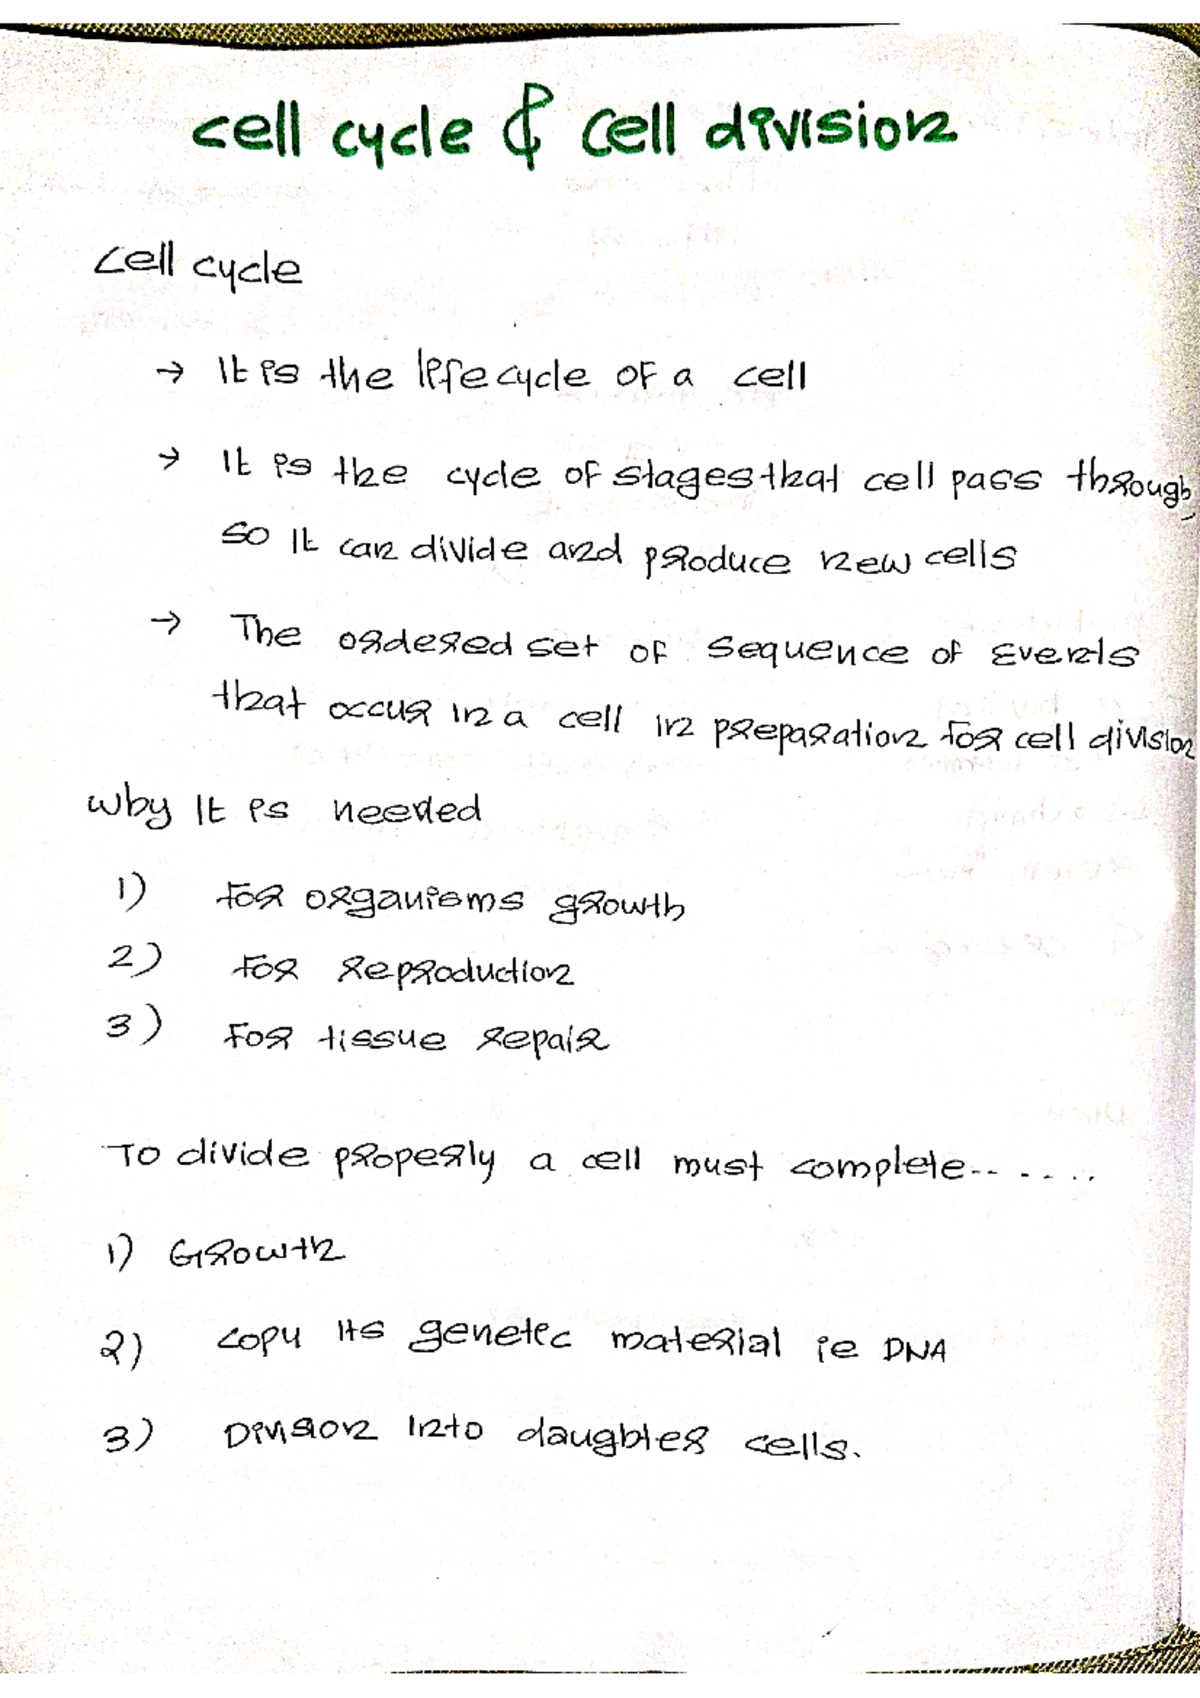 cell cycle & cell division
cell cycle
→ It is the life cycle of a cell
→ It is the cycle of stages that cell pass through,
so It can divide and produce new cells
→ The ordered set of sequence of Events
that occur in a cell in preparation for cell division
why It is needed
1) for organisms growth
2) for reproduction
3) For tissue repair
To divide properly a cell must complete.. . . . ..
1) Growth
2) copy its genetic material ie DNA
3) Division into daughter cells.